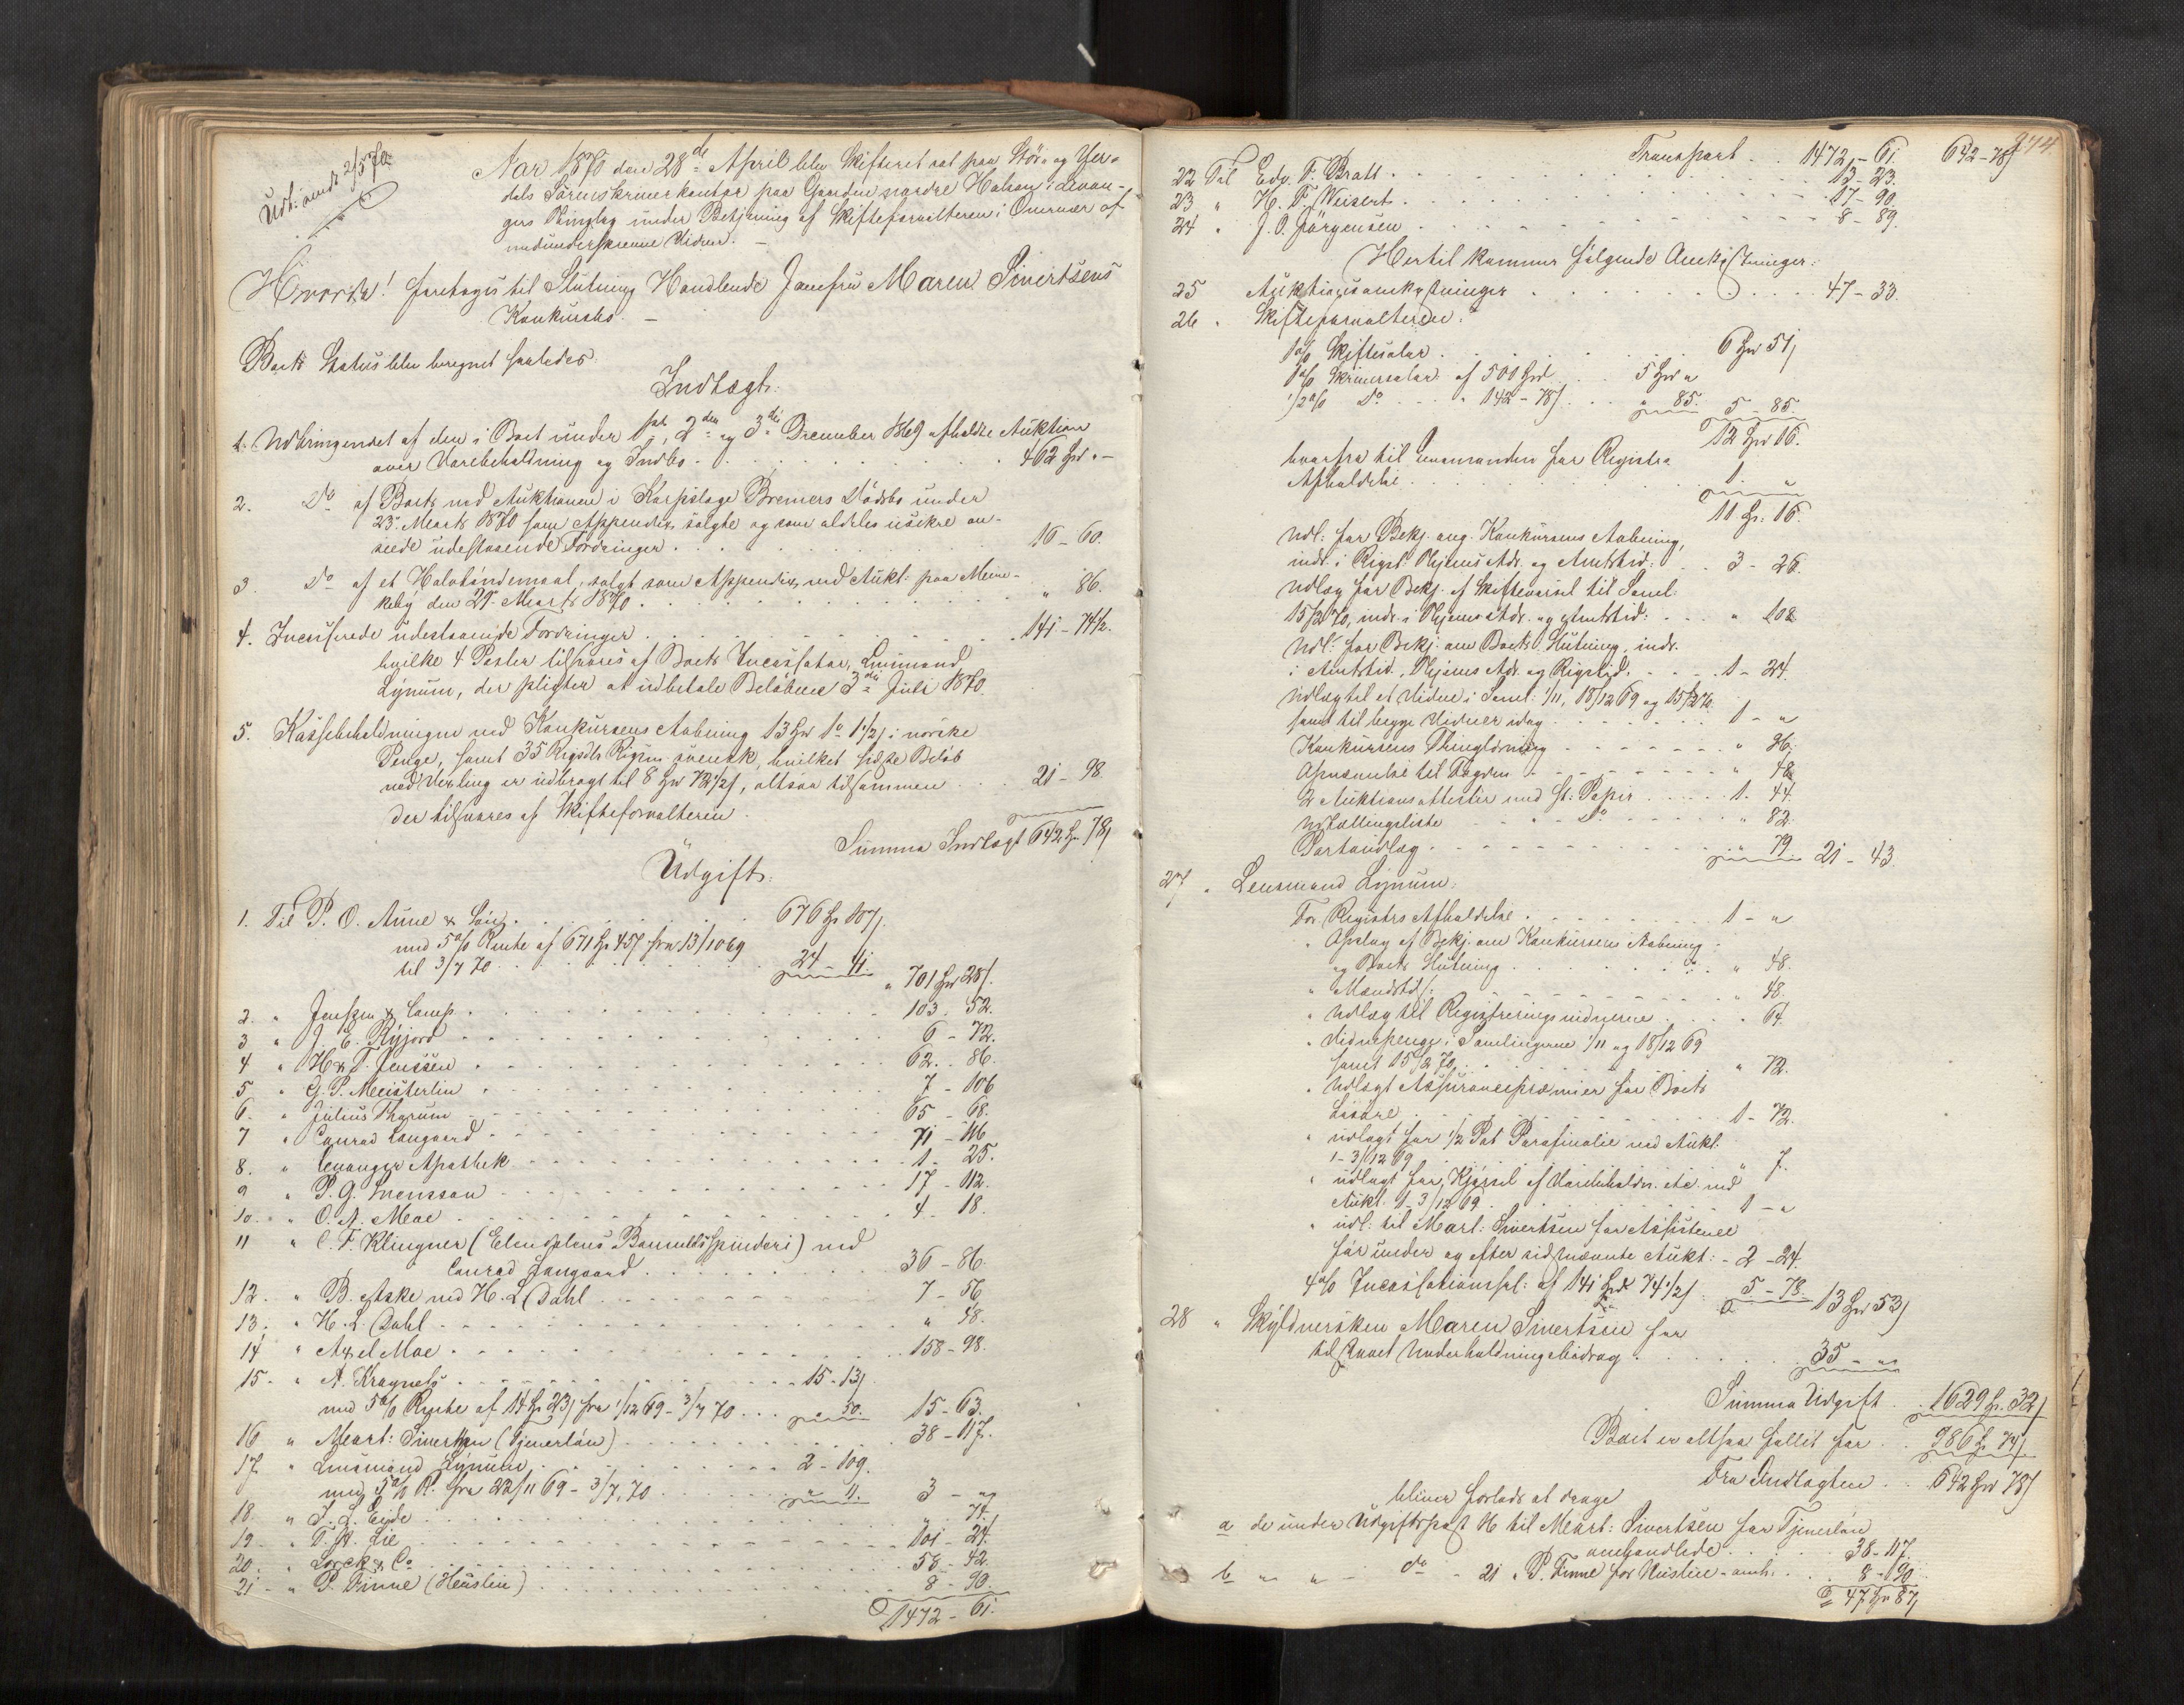 Udb: andr 2/5 70
Aar 1870 den 28de April blev Skifteret sat paa Stör- og Ver-
dals Sorenskriverkontor paa Gaarden nordre Halsan i Levan-
gers Thinglag under Betjening af Skifteforvalteren i Overvær af
medunderskrevne Vidner. –
Hvorda! foretoges til Slutning Handlende Jomfru Maren Sivertsens
Konkursbo. –
Boets Status blev beregnet saaledes:
Indtægt:
1. Udbringendet af den i Boet under 1ste, 2den og 3die December 1869 afholdte Auktion
over Varebeholdning og Indbo . . . 462 Spd „ –
2. Do af Boets ved Auktionen i Bremers Dödsbo under
23. Marts 1870 som Appendix solgte og som aldeles usikre an-
seede udestaaende Fordringer . . . 16 – 60.
3. Do af et Halvtöndemaal, solgt som Appendix ved Aukt: paa Meine-
keby den 29. Marts 1870 . . . „ 86.
4. Incasserede udestaaende Fordringer . . . 141 – 74½.
hvilke 4 Poster tilsvares af Boets Incassator, Lensmand
Lynum, der pligter at udbetale Belöbene 3die Juli 1870.
5. Kassebeholdningen ved Konkursens Aabning 13 Spd 1 ½ β i norske
Penge, samt 35 Rigsdlr Rigm svensk, hvilket sidste Belöb
ved Vexling er udbragt til 8 Spd 72½ β, altsaa tilsammen . . 21 – 98
der tilsvares af Skifteforvalteren.
Summa Indtægt 642 Sp 78 β
Udgift:
1. Til P. O. Aune & Sön . . . 676 Sp 107 β.
med 5% Rente af 671 Sp 45 β fra 13/10 69
til 3/7 70 . . . 24 – 41. „ 701 Spd 28 β.
2. „ Jenssen & Comp . . . 103. 52.
3 „ J. E. Ryjord . . . 6 – 72.
4 „ H & F. Jenssen . . . 62. 86.
5 „ G. P. Meisterlin . . . 7 – 106
6. „ Julius Thorum . . . 65 – 68.
7 „ Conrad Langaard . . . 71 – 116
8. „ Levanger Apothek . . . 1 – 25.
9 „ P. G. Svensson . . . 17 – 112.
10. „ O. A. Moe . . . 4 – 18.
11 „ C. F. Klingner (Bomuldsspinderi) ved
Conrad Langaard . . . 36 – 86.
12. „ B. Aske ved H. L. Dahl . . . 7 – 56
13. „ H. L. Dahl . . . „ 48.
14 „ Axel Moe . . . 158 – 98.
15. „ A. Kragnels . . . 15 – 13 β
med 5% Rente af 14 Sp 23 β fra 1/12 69 – 3/7 70 . . . „ 50. 15 – 63.
16 „ Mart: Sivertsen (Tjenerlön) . . . 38 – 117.
17. „ Lensmand Lynum . . . 2 – 109.
med 5% R. fra 22/11 69 – 3/7 70 . . . „ 11. 3 – „
18. „ J. L. Eide . . . „ 74.
19. „ T. A. Lie . . . 101 – 24.
20. „ Lorck & Co . . . 58 – 42.
21 „ P. Finne (Husleie) . . . 8 – 90.
1472 – 61.
974.
Transport . . 1472 – 61. 642 – 78 β
22 Til Edv. F. Bratt . . . 13 – 23.
23 „ H. F. Weisert . . . 17 – 90.
24 „ J. O. Jörgensen . . . 8 – 89.
Hertil kommer fölgende Omkostninger:
25 Auktionsomkostninger . . . 47 – 33.
26 „ Skifteforvalteren:
1% Skiftesalar . . . 6 Spd 51 β
1% Skriversalar af 500 Spd . . 5 Spd „
½% Do „ 142 – 78 β . . „ 85. 5 – 85.
12 Spd 16.
hvorfra til Lensmanden for Registrs
Afholdelse . . . 1. „
11 Sp: 16.
Udl: for Bekj. ang. Konkursens Aabning,
indr. i Rigst. Thjems Adr. og Amtstid: . . 3 – 26.
Udlæg for Bekj. af Skiftevarsel til Saml:
15/2 70, indr. i Thjems Adr. og Amtstid: . . . „ 108
Udl: for Bekj. om Boets Slutning, indr.
i Amtstid., Thjems Adr. og Rigstid. . . . 1 – 24.
Udlæg til et Vidne i Saml: 1/11, 18/12 69 og 15/2 70
samt til begge Vidner idag . . . 1 – „
Konkursens Thinglæsning . . . „ 36.
Afskrivelse til Fogden . . . „ 48
2 Auktionsattester med st: Papir . . . 1. 44.
Udtællingsliste Do . . . „ 82.
Portoudlæg . . . „ 79. 21 – 43.
27 „ Lensmand Lynum:
For Registrs Afholdelse . . . 1 – „
„ Opslag af Bekj. om Konkursens Aabning
og Boets Slutning . . . „ 48.
„ Mandtal . . . „ 48.
„ Udlæg til Registreringsvidnerne . . . „ 64.
„ Vidnepenge i Samlingerne 1/11 og 18/12 69
samt 15/2 70 . . . „ 72.
„ Udlagt Assurancepræmier for Boets
Lösöre . . . 1 – 72.
„ udlagt for ½ Pot Parafinolie ved Aukt.
1–3/12 69 . . . „ 7.
„ udlagt for Kjörsel af Varebeholdn. etc. ved
Aukt. 1–3/12 69 . . . 1 – „
„ udl. til Mart: Sivertsen for Assistence
för under og efter sidnævnte Aukt: – 2 – 24.
4% Incassationssal: af 141 Spd 74½ β . 5 – 78. 13 Spd 53 β
28 „ Skyldnersken Maren Sivertsen for
tilstaaet Underholdningsbidrag . . . 35 – „
Summa Udgift . . 1629 Sp. 32 β
Boet er altsaa fallit for . . 986 Sp 74 β
Fra Indtægten . . 642 Spd 78 β
bliver forlods at drage
a de under Udgiftspost 16 til Mart: Sivertsen for Tjenerlön
omhandlede . . . 38 – 117.
b „ „ – do – 21 „ P. Finne for Husleie – omh. . . 8 – 90.
47 Sp 87 β